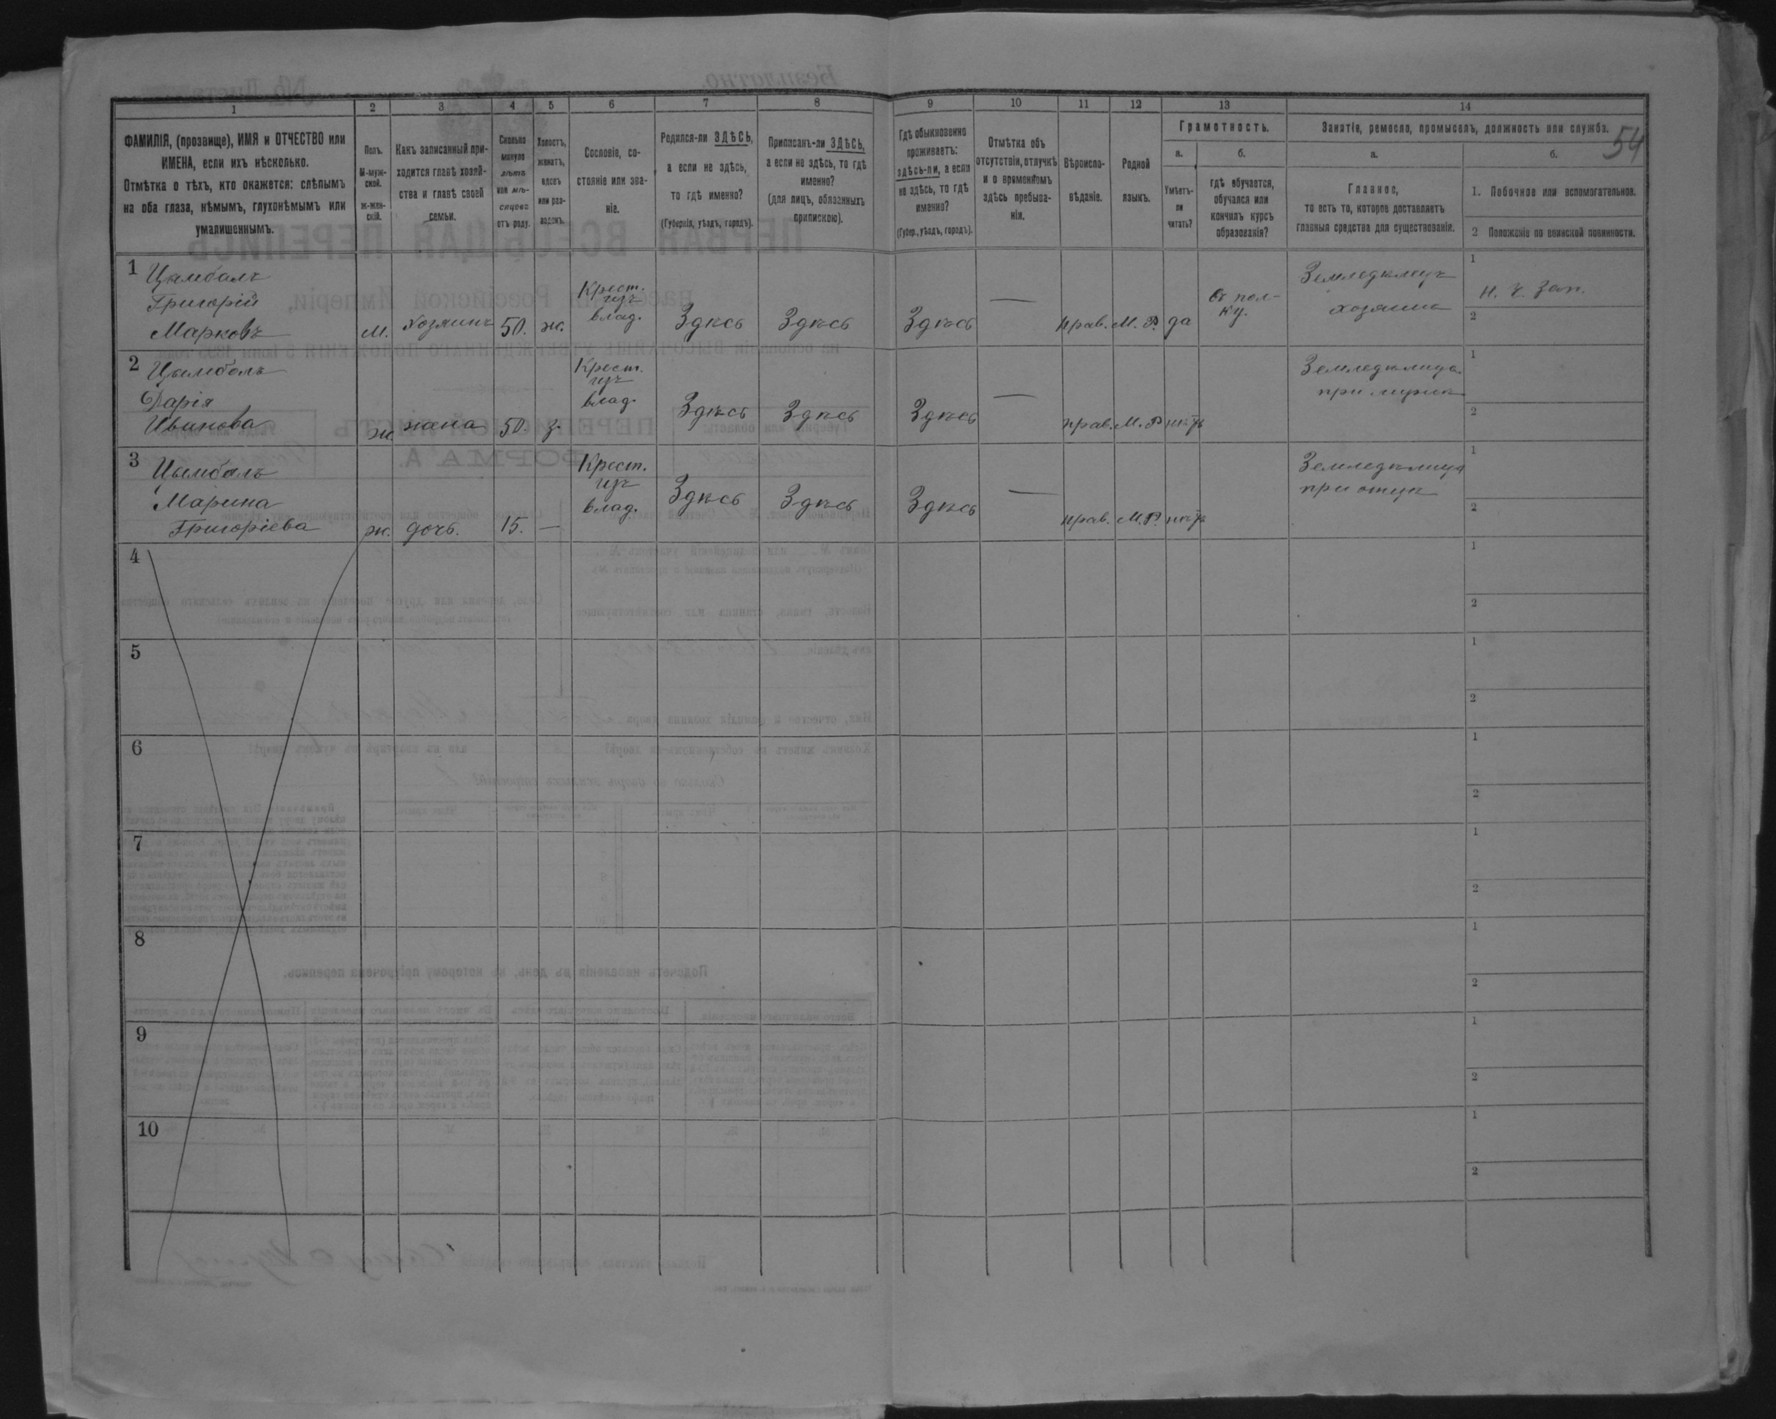 54
1 2 3 4 5 6 7 8 9 10 11 12 13 14
ФАМИЛІЯ, (прозвище), ИМЯ и ОТЧЕСТВО или
ИМЕНА, если ихъ нѣсколько.
Отмѣтка о тѣхъ, кто окажется: слѣпымъ
на оба глаза, нѣмымъ, глухонѣмымъ или
умалишеннымъ.
Полъ.
М-муж-
ской.
ж-жен-
скій.
Какъ записанный при-
ходится главѣ хозяй-
ства и главѣ своей
семьи.
Сколько
минуло
лѣтъ
или мѣ-
сяцевъ
отъ роду.
Холостъ,
женатъ,
вдовъ
или раз-
веденъ.
Сословіе, со-
стояніе или зва-
ніе.
Родился-ли ЗДѢСЬ,
а если не здѣсь,
то гдѣ именно?
(Губернія, уѣздъ, городъ).
Приписанъ-ли ЗДѢСЬ,
а если не здѣсь, то гдѣ
именно?
(для лицъ, обязанныхъ
припискою).
Гдѣ обыкновенно
проживаетъ:
здѣсь-ли, а если
не здѣсь, то гдѣ
именно?
(Губер., уѣздъ, городъ).
Отмѣтка объ
отсутствіи, отлучкѣ
и о временномъ
здѣсь пребыва-
ніи.
Вѣроиспо-
вѣданіе.
Родной
языкъ.
Грамотность.
а.
Умѣетъ-
ли
читать?
б.
гдѣ обучается,
обучался или
кончилъ курсъ
образованія?
Занятіе, ремесло, промыселъ, должность или служба.
а.
Главное,
то есть то, которое доставляетъ
главныя средства для существованія.
б.
1. Побочное или вспомогательное.
2 Положеніе по воинской повинности.
1 Цымбалъ
Григорій
Марковъ
м. хозяинъ 50. ж.
Крест.
изъ
влад.
Здѣсь Здѣсь Здѣсь — прав. М. Р. да
въ пол-
ку.
Земледѣлецъ
хозяинъ
1
н. ч. зап.
2
2 Цымбалъ
Дарія
Иванова
ж жена 50. з.
Крест.
изъ
влад.
Здѣсь Здѣсь Здѣсь — прав. М. Р. нѣтъ
Земледѣлица
при мужѣ
1
2
3 Цымбалъ
Марина
Григоріева
ж. дочь. 15. —
Крест.
изъ
влад.
Здѣсь Здѣсь Здѣсь — прав. М. Р. нѣтъ
Земледѣлица
при отцѣ
1
2
4 1
2
5 1
2
6 1
2
7 1
2
8 1
2
9 1
2
10 1
2